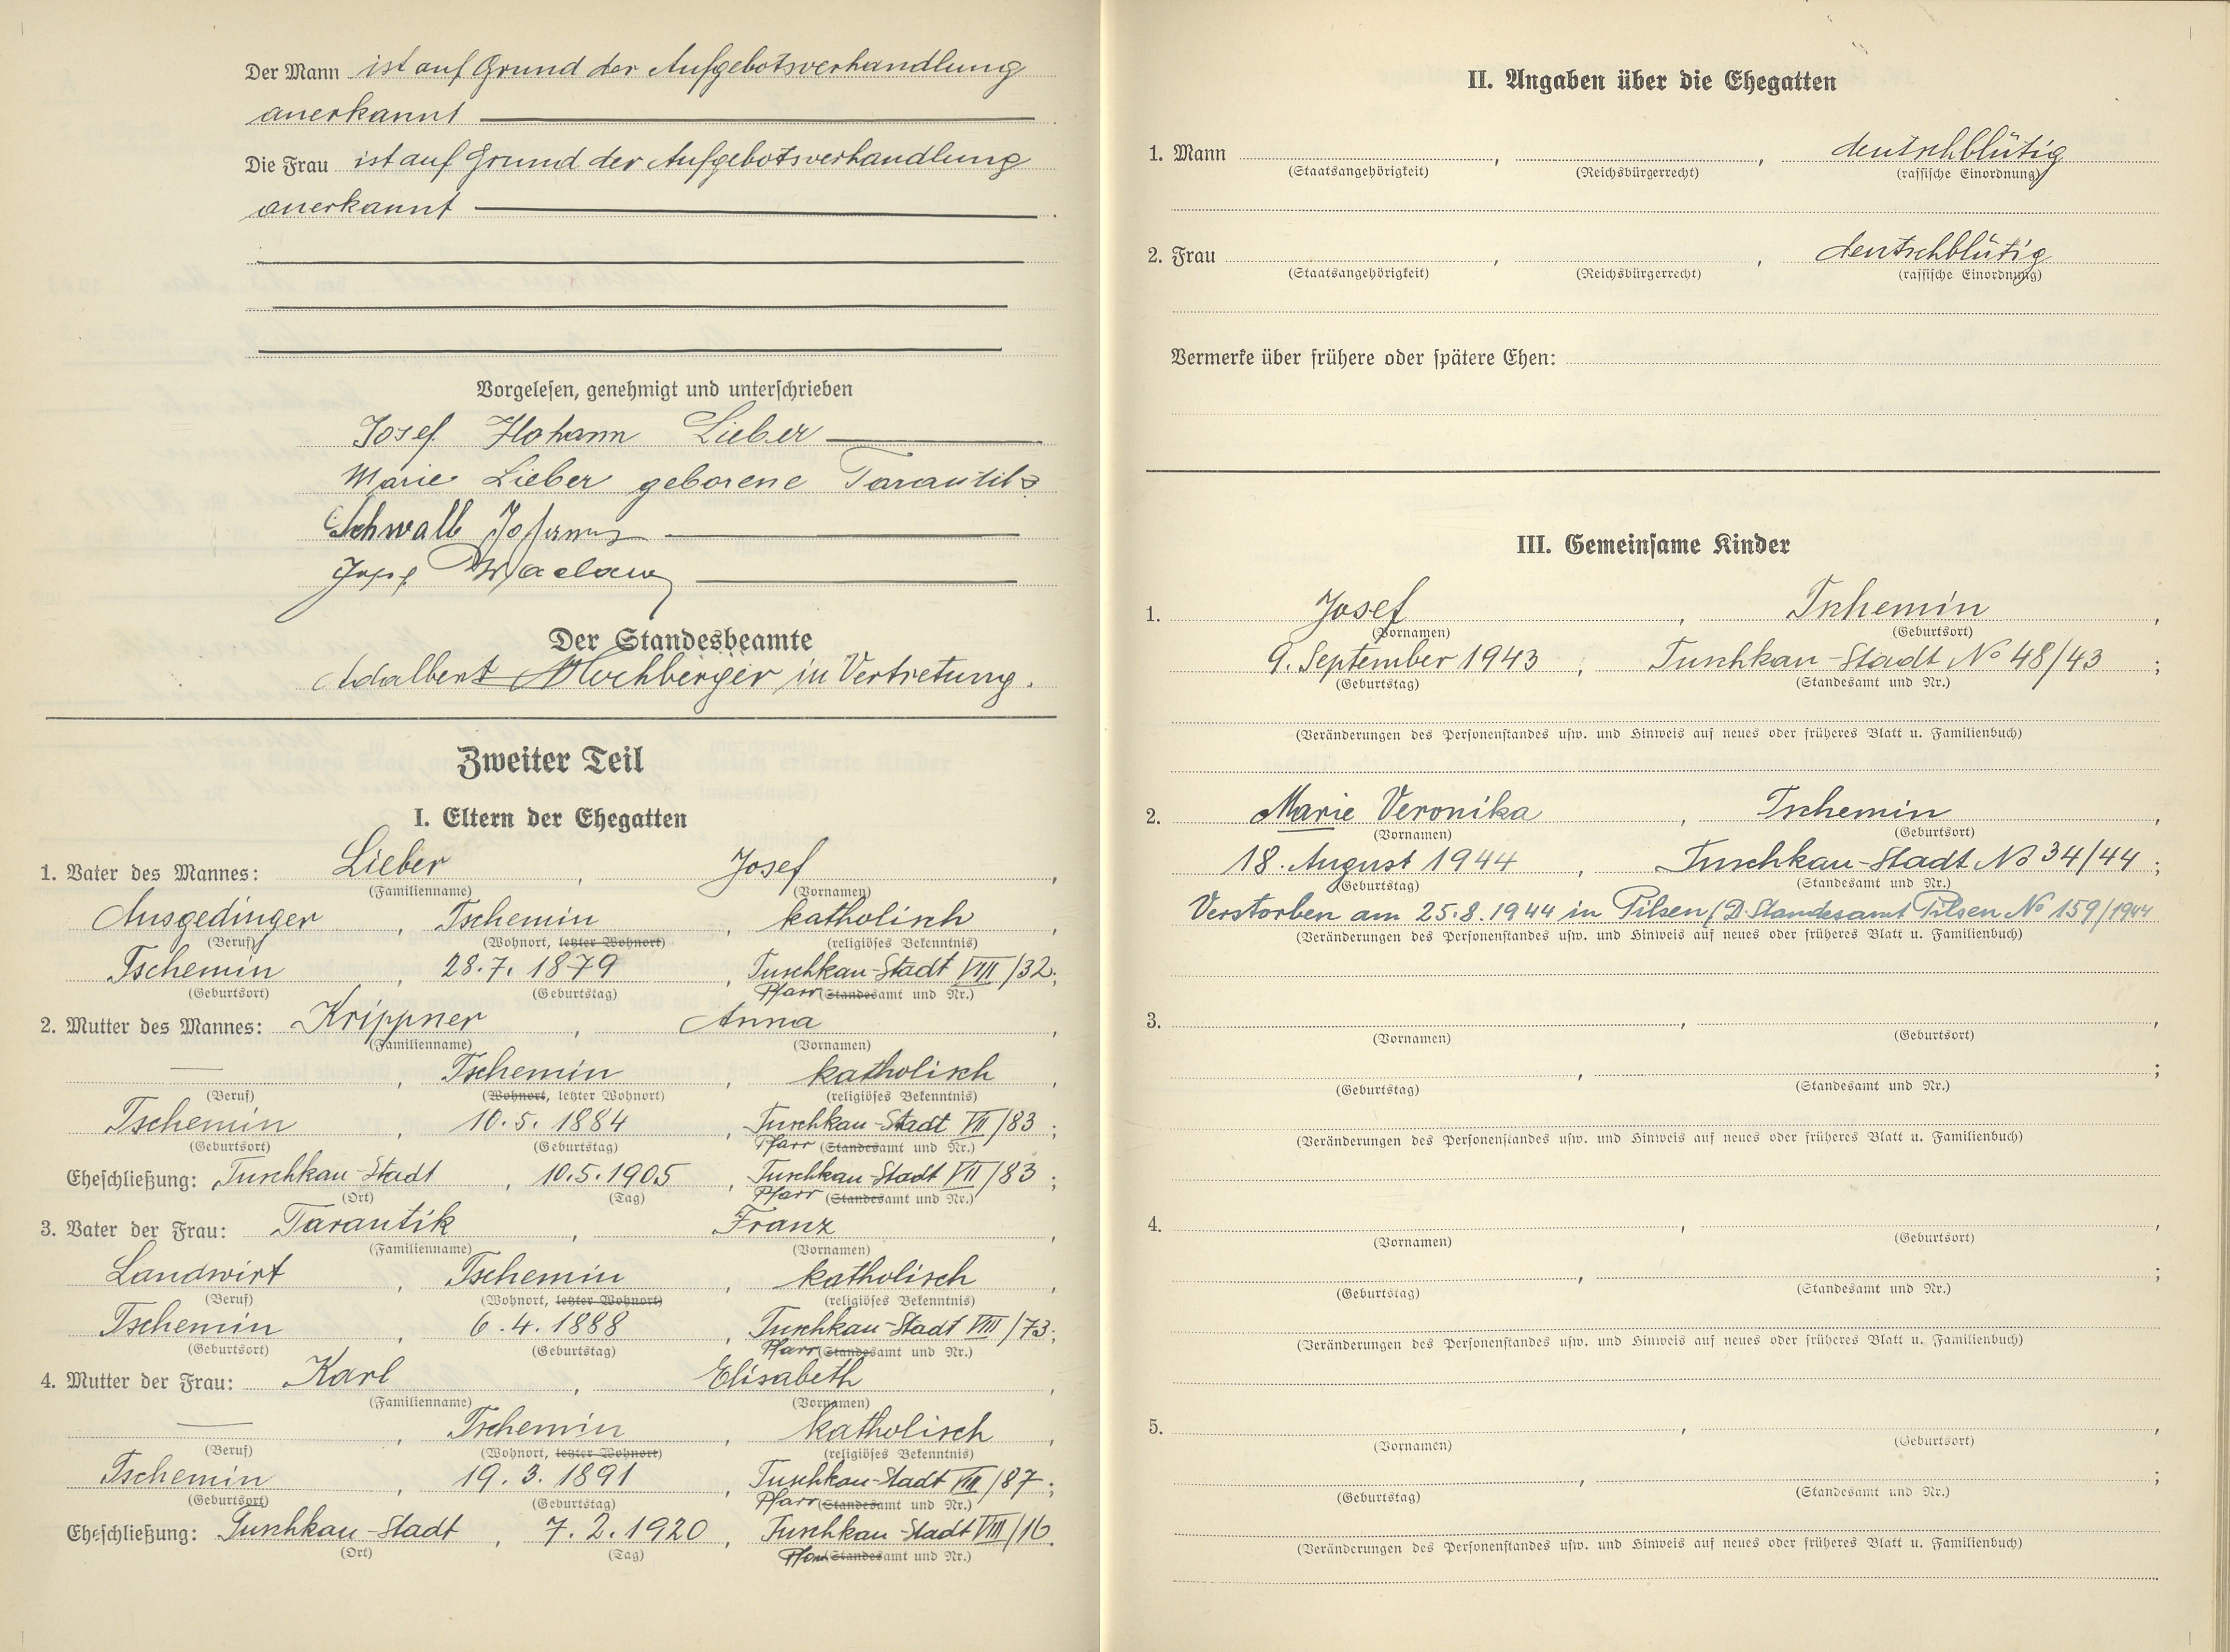 Der Mann ist auf Grund der Aufgebotsverhandlung
anerkannt
Die Frau ist auf Grund der Aufgebotsverhandlung
anerkannt
Vorgelesen, genehmigt und unterschrieben
Josef Johann Lieber
Marie Lieber geborene Tarantik
Schwalb Johann
Josef
Der Standesbeamte
Adalbert Hochberger in Vertretung.
Zweiter Teil
I. Eltern der Ehegatten
1. Vater des Mannes: Lieber, Josef,
(Familienname) (Vornamen)
Ausgedinger, Tschemin, katholisch,
(Beruf) (Wohnort, letzter Wohnort) (religiöses Bekenntnis)
Tschemin, 28.7.1879, Tuschkau-Stadt VIII/32;
(Geburtsort) (Geburtstag) Pfarr (Standesamt und Nr.)
2. Mutter des Mannes: Krippner, Anna,
(Familienname) (Vornamen)
—, Tschemin, katholisch,
(Beruf) (Wohnort, letzter Wohnort) (religiöses Bekenntnis)
Tschemin, 10.5.1884, Tuschkau-Stadt VII/83;
(Geburtsort) (Geburtstag) Pfarr (Standesamt und Nr.)
Eheschließung: Tuschkau-Stadt, 10.5.1905, Tuschkau-Stadt VII/83;
(Ort) (Tag) Pfarr (Standesamt und Nr.)
3. Vater der Frau: Tarantik, Franz,
(Familienname) (Vornamen)
Landwirt, Tschemin, katholisch,
(Beruf) (Wohnort, letzter Wohnort) (religiöses Bekenntnis)
Tschemin, 6.4.1888, Tuschkau-Stadt VIII/73;
(Geburtsort) (Geburtstag) Pfarr (Standesamt und Nr.)
4. Mutter der Frau: Karl, Elisabeth,
(Familienname) (Vornamen)
—, Tschemin, katholisch,
(Beruf) (Wohnort, letzter Wohnort) (religiöses Bekenntnis)
Tschemin, 19.3.1891, Tuschkau-Stadt VIII/87;
(Geburtsort) (Geburtstag) Pfarr (Standesamt und Nr.)
Eheschließung: Tuschkau-Stadt, 7.2.1920, Tuschkau-Stadt VIII/16.
(Ort) (Tag) Pfarr (Standesamt und Nr.)
II. Angaben über die Ehegatten
1. Mann , , deutschblütig
(Staatsangehörigkeit) (Reichsbürgerrecht) (rassische Einordnung)
2. Frau , , deutschblütig
(Staatsangehörigkeit) (Reichsbürgerrecht) (rassische Einordnung)
Vermerke über frühere oder spätere Ehen:
III. Gemeinsame Kinder
1. Josef, Tschemin,
(Vornamen) (Geburtsort)
9. September 1943, Tuschkau-Stadt No 48/43;
(Geburtstag) (Standesamt und Nr.)
(Veränderungen des Personenstandes usw. und Hinweis auf neues oder früheres Blatt u. Familienbuch)
2. Marie Veronika, Tschemin,
(Vornamen) (Geburtsort)
18. August 1944, Tuschkau-Stadt No 34/44;
(Geburtstag) (Standesamt und Nr.)
Verstorben am 25.8.1944 in Pilsen (D. Standesamt Pilsen No 159/1944
(Veränderungen des Personenstandes usw. und Hinweis auf neues oder früheres Blatt u. Familienbuch)
3. , ,
(Vornamen) (Geburtsort)
, ;
(Geburtstag) (Standesamt und Nr.)
(Veränderungen des Personenstandes usw. und Hinweis auf neues oder früheres Blatt u. Familienbuch)
4. , ,
(Vornamen) (Geburtsort)
, ;
(Geburtstag) (Standesamt und Nr.)
(Veränderungen des Personenstandes usw. und Hinweis auf neues oder früheres Blatt u. Familienbuch)
5. , ,
(Vornamen) (Geburtsort)
, ;
(Geburtstag) (Standesamt und Nr.)
(Veränderungen des Personenstandes usw. und Hinweis auf neues oder früheres Blatt u. Familienbuch)